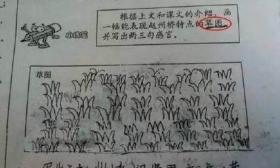 小练笔
根据上文和课文的介绍，画
一幅能表现赵州桥特点的草图，
并写出两三句感言。
草图